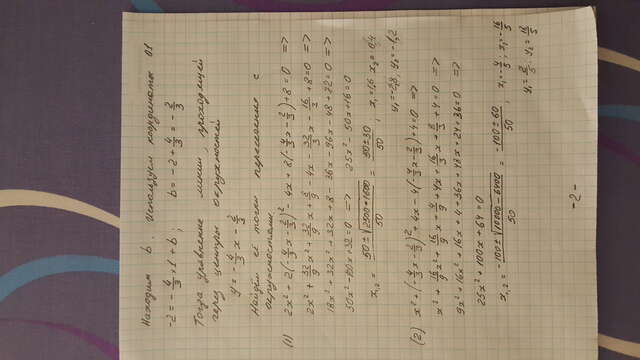 Находим b. Используем координаты О1
-2 = -4/3 · 1 + b ; b = -2 + 4/3 = -2/3
Тогда уравнение линии, проходящей
через центры окружностей
y = -4/3 x - 2/3
Найдём её точки пересечения с
окружностями.
(1) 2x² + 2(-4/3 x - 2/3)² - 4x + 8(-4/3 x - 2/3) + 8 = 0 =>
2x² + 32/9 x² + 32/9 x + 8/9 - 4x - 32/3 x - 16/3 + 8 = 0 =>
18x² + 32x² + 32x + 8 - 36x - 96x - 48 + 72 = 0 =>
50x² - 100x + 32 = 0 => 25x² - 50x + 16 = 0
x₁,₂ = (50 ± √(2500 - 1600))/50 = (50 ± 30)/50 ; x₁ = 1,6 x₂ = 0,4
y₁ = -2,8, y₂ = -1,2
(2) x² + (-4/3 x - 2/3)² + 4x - 4(-4/3 x - 2/3) + 4 = 0 =>
x² + 16/9 x² + 16/9 x + 4/9 + 4x + 16/3 x + 8/3 + 4 = 0 =>
9x² + 16x² + 16x + 4 + 36x + 48x + 24 + 36 = 0 =>
25x² + 100x + 64 = 0
x₁,₂ = (-100 ± √(10000 - 6400))/50 = (-100 ± 60)/50 ; x₁ = -4/5 ; x₂ = -16/5
y₁ = 2/5 ; y₂ = 18/5
-2-